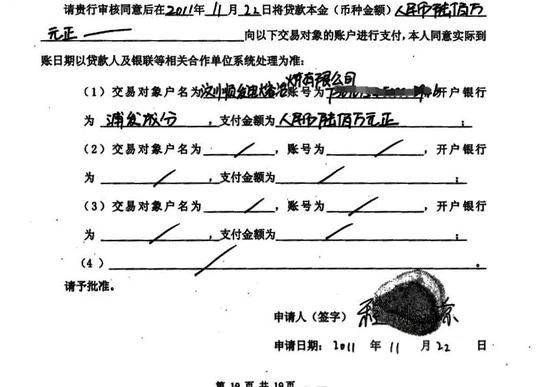 请贵行审核同意后在2011年11月22日将贷款本金（币种金额）人民币陆佰万
元正 向以下交易对象的账户进行支付，本人同意实际到
账日期以贷款人及银联等相关合作单位系统处理为准：
（1）交易对象户名为 有限公司 账号为 开户银行
为 浦发 ，支付金额为 人民币陆佰万元正 ；
（2）交易对象户名为 ／ ，账号为 ／ ，开户银行
为 ／ ，支付金额为 ／ ；
（3）交易对象户名为 ／ ，账号为 ／ ，开户银行
为 ／ ，支付金额为 ／ ；
（4） ／
请予批准。
申请人（签字）
申请日期：2011 年 11 月 22 日
第 19 页 共 19 页